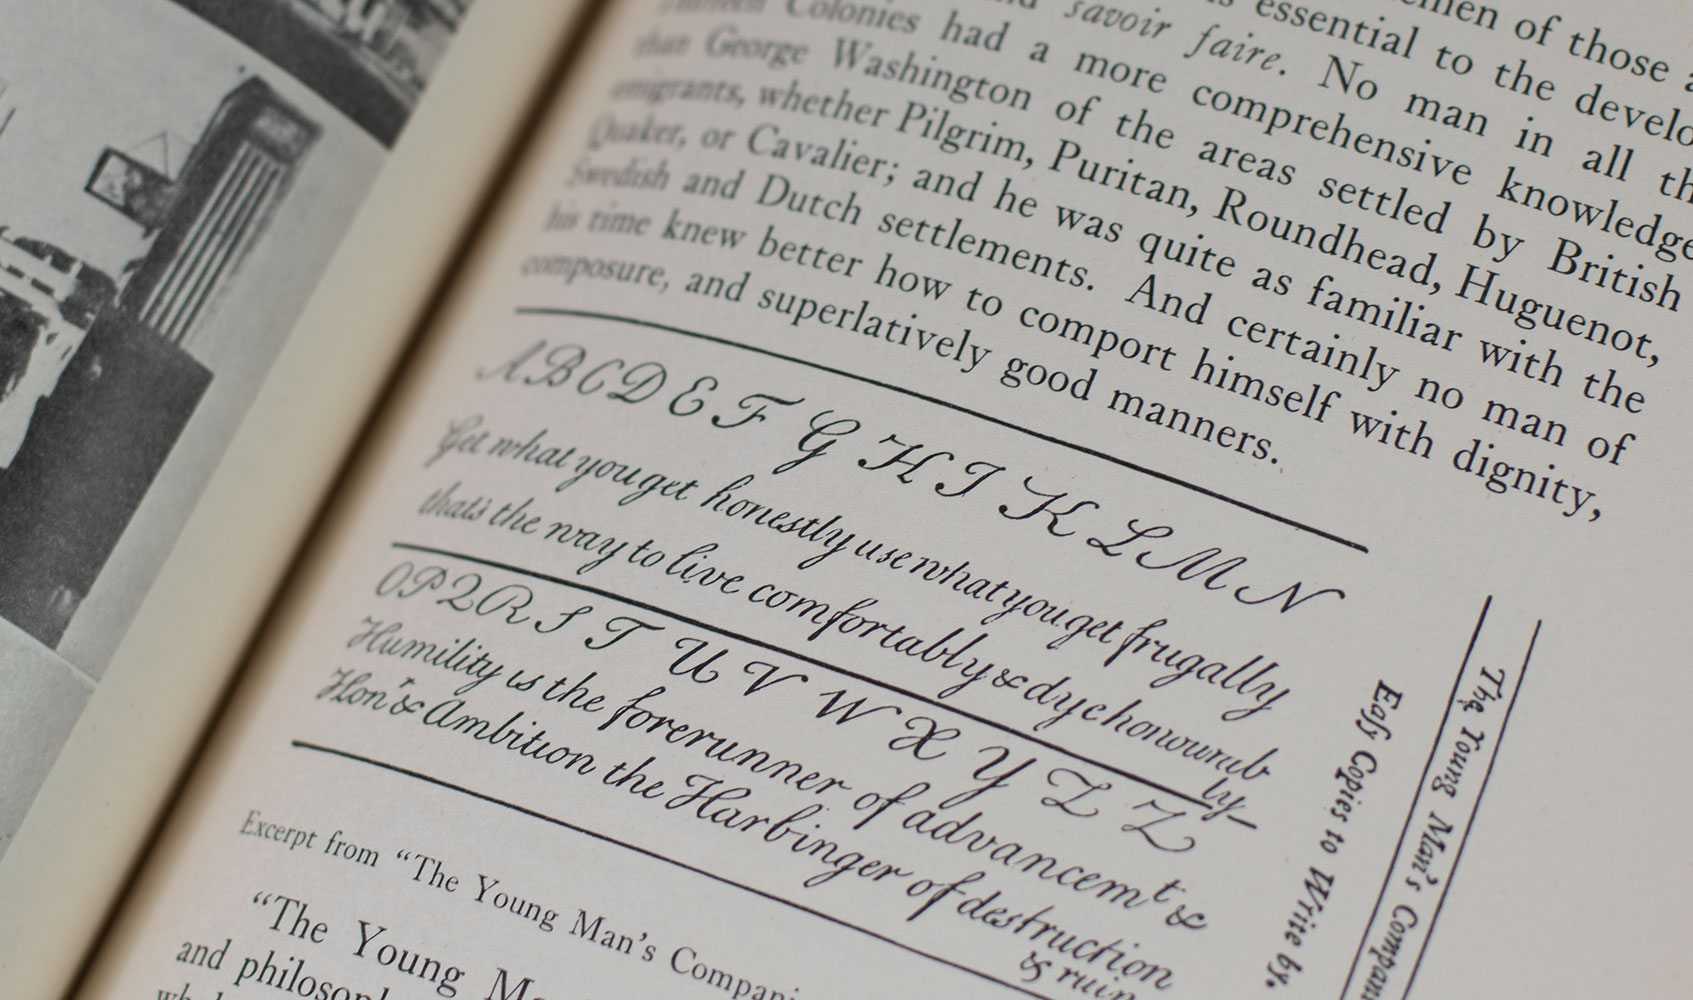 men of those
is essential to the develo
savoir faire. No man in all th
Colonies had a more comprehensive knowledge
than George Washington of the areas settled by British
emigrants, whether Pilgrim, Puritan, Roundhead, Huguenot,
Quaker, or Cavalier; and he was quite as familiar with the
Swedish and Dutch settlements. And certainly no man of
his time knew better how to comport himself with dignity,
composure, and superlatively good manners.
A B C D E F G H I K L M N
Get what you get honestly use what you get frugally
thats the way to live comfortably & dye honourab
ly-
O P Q R S T U V W X Y Z Z
Humility is the forerunner of advancemt &
Honr & Ambition the Harbinger of destruction
& ruin
Easy Copies to Write by.
The Young Man's Compani
Excerpt from “The Young Man's Compani
“The Young M
and philosoph